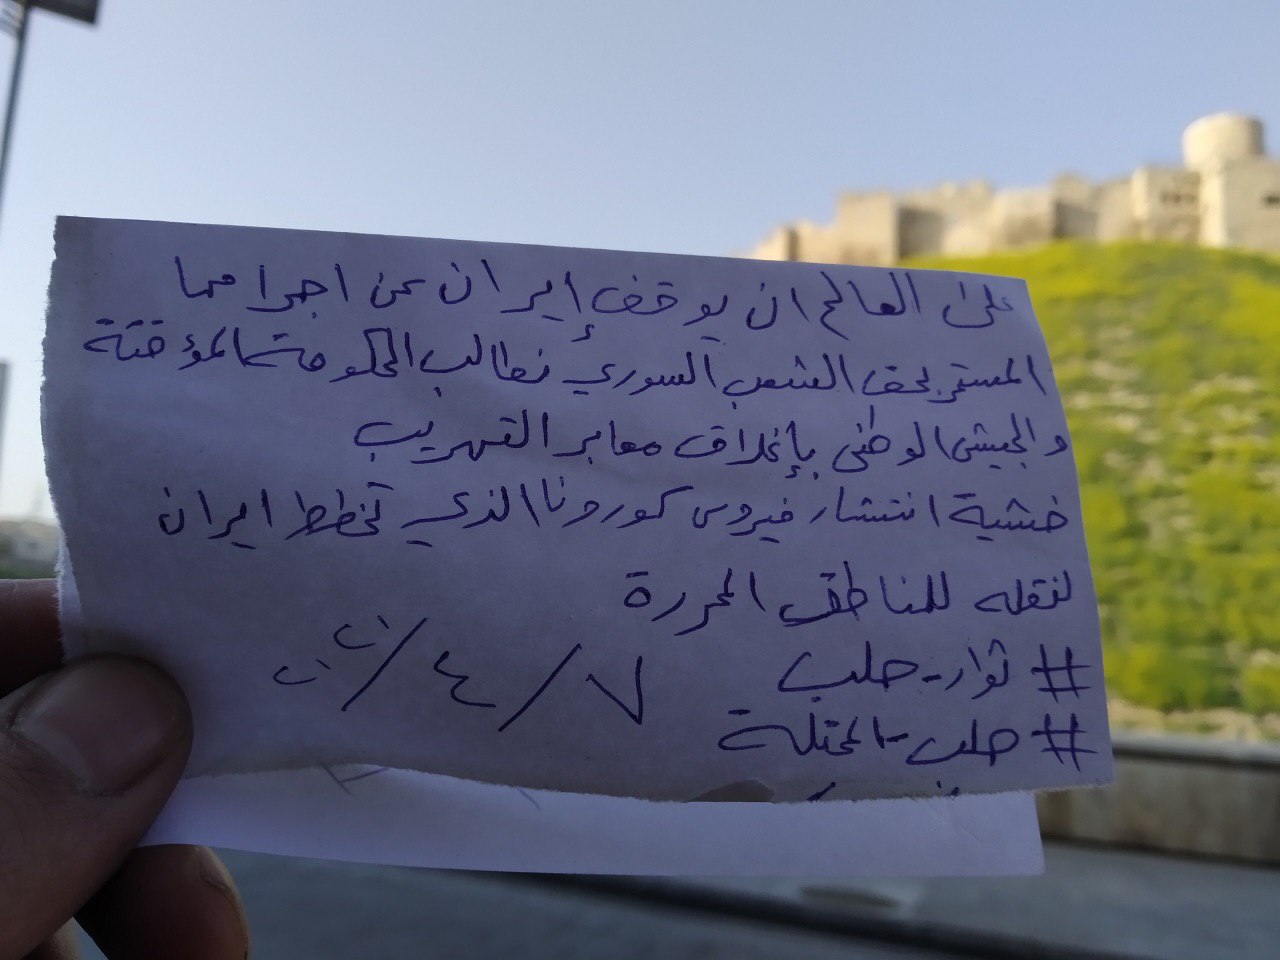 على العالم ان يوقف إيران عن اجرامها
المستمر بحق الشعب السوري نطالب الحكومة المؤقتة
والجيش الوطني بإغلاق معابر التهريب
خشية انتشار فيروس كورونا الذي تخطط ايران
لنقله للمناطق المحررة
# ثوار-حلب ٧/٤/
# حلب-المحتلة